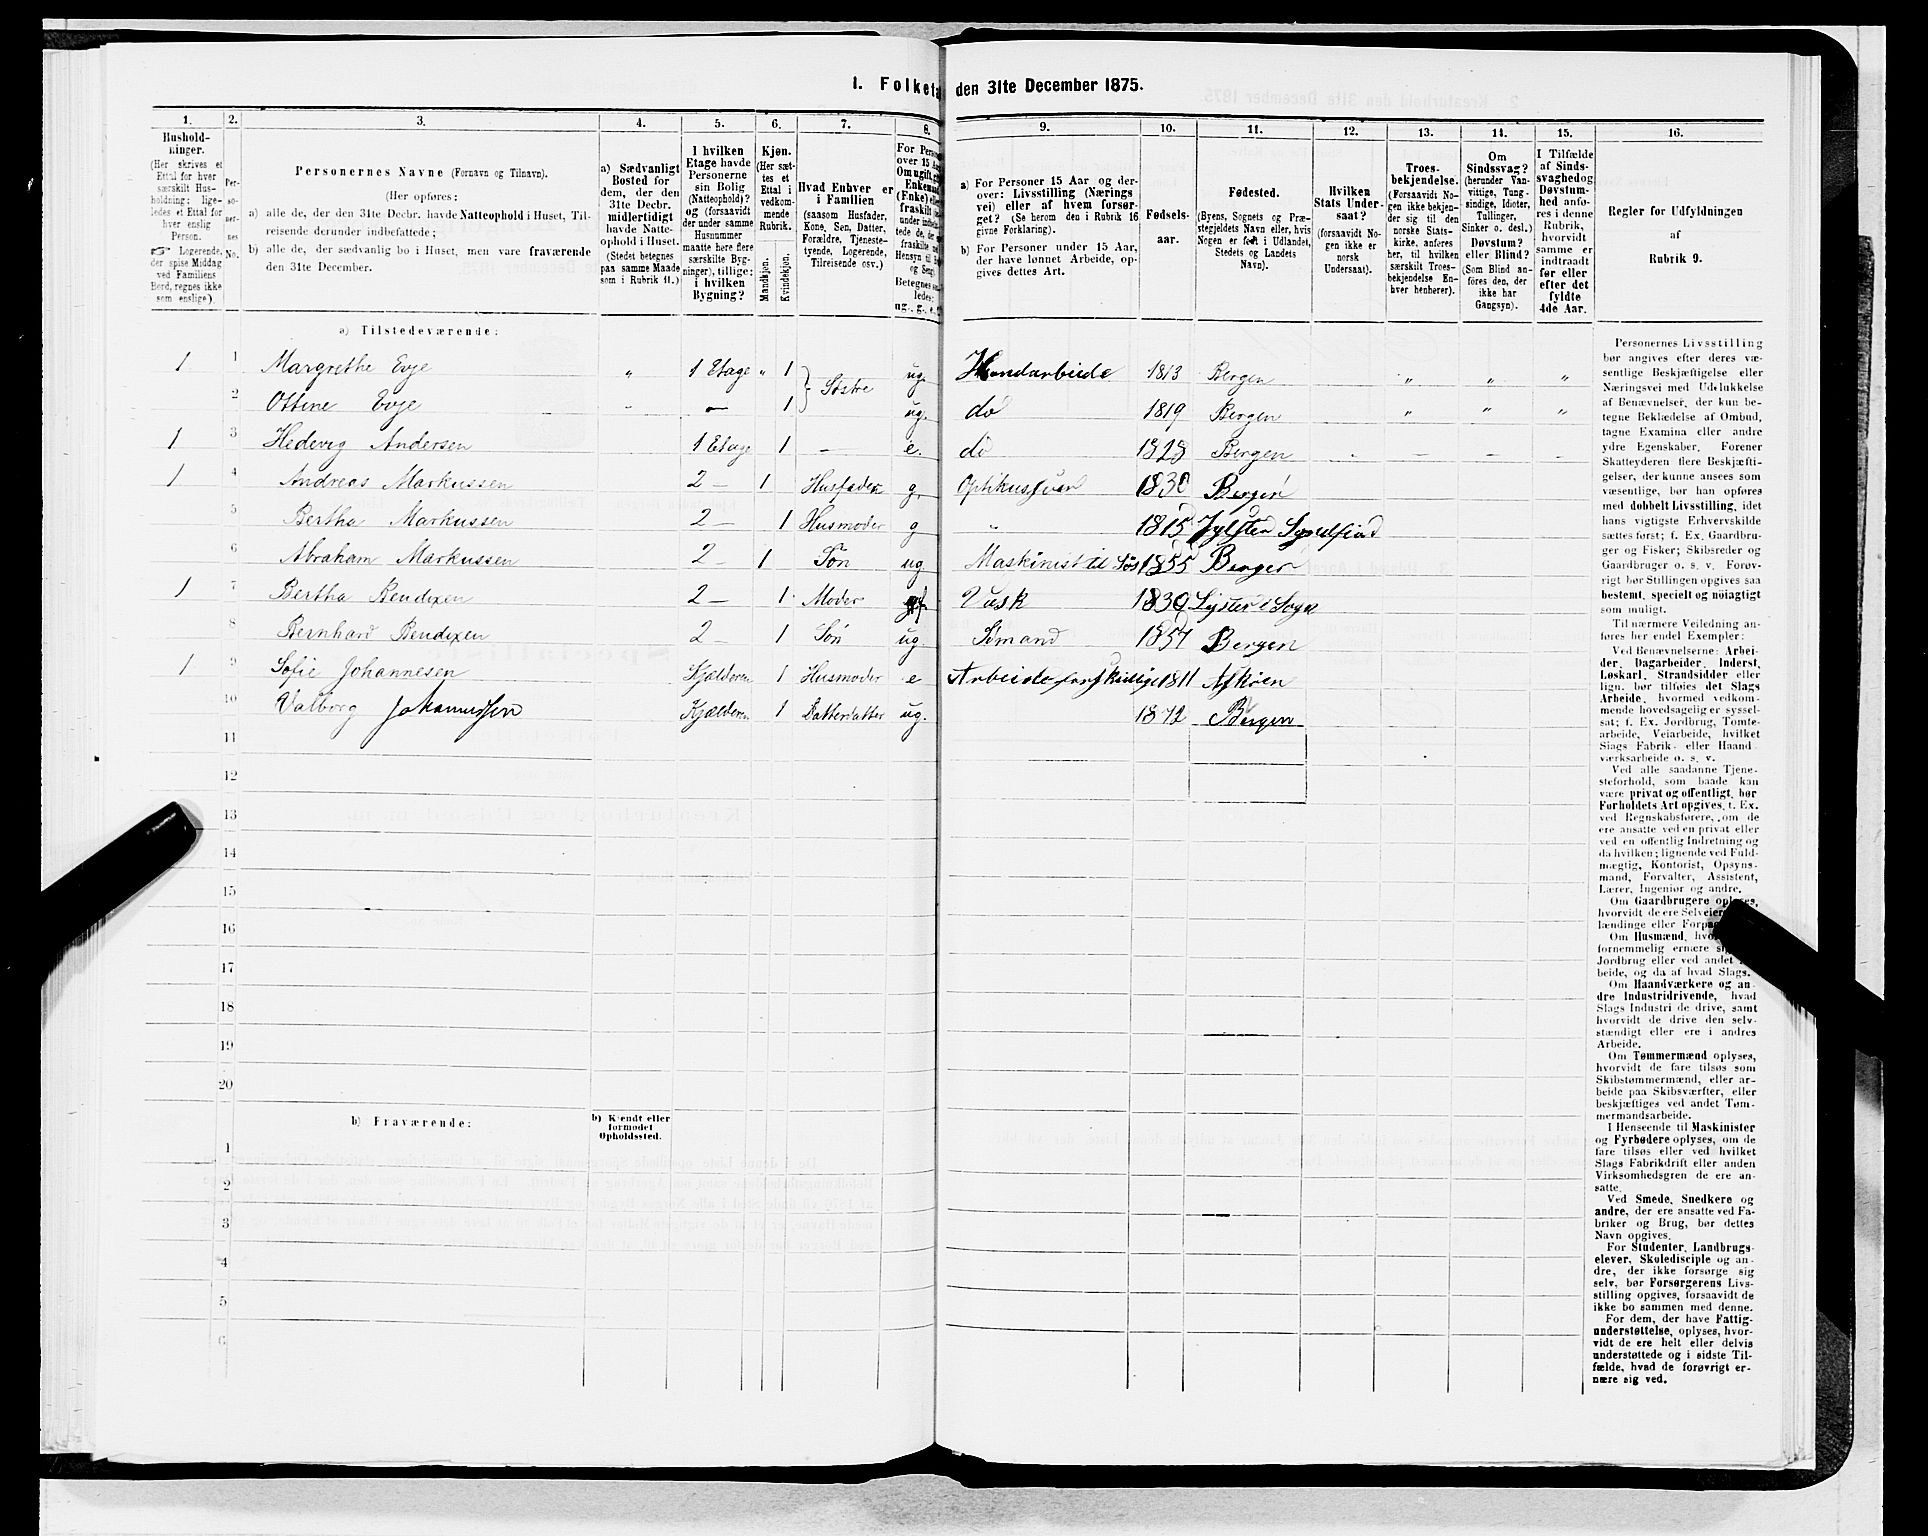 1. Folketæ den 31te December 1875.
1. 2. 3. 4. 5. 6. 7. 8. 9. 10. 11. 12. 13. 14. 15. 16.
Hushold-
ninger.
(Her skrives et
Ettal for hver
særskilt Hus-
holdning: lige-
ledes et Ettal for
hver enslig
Person.
☞ Logerende,
der spise Middag
ved Familiens
Bord, regnes ikke
som enslige).
Per-
so-
ner-
nes
No.
Personernes Navne (Fornavn og Tilnavn).
(Her opføres:
a) alle de, der den 31te Decbr. havde Natteophold i Huset, Til-
reisende derunder indbefattede;
b) alle de, der sædvanlig bo i Huset, men vare fraværende
den 31te December.
a) Sædvanligt
Bosted for
dem, der den
31te Decbr.
midlertidigt
havde Natte-
ophold i Huset.
(Stedet betegnes
paa samme Maade
som i Rubrik 11.)
I hvilken
Etage havde
Personerne
sin Bolig
(Natteophold)?
og (forsaavidt
der under samme
Husnummer
maatte høre flere
særskilte Byg-
ninger), tillige:
i hvilken
Bygning?
Kjøn.
(Her sæt-
tes et
Ettal i
vedkom-
mende
Rubrik.
Mandkjøn.
Kvindekjøn.
Hvad Enhver er
i Familien
(saasom Husfader,
Kone, Søn, Datter,
Forældre, Tjeneste-
tyende, Logerende,
Tilreisende osv.)
For Perso
over 15 Aa
Om ugift, g
Enkemand
(Enke) elle
fraskilt
under indbe
tede de, de
fraskilte
Hensyn til
og Seng
Betegnes
ledes:
ug., g., e.
a) For Personer 15 Aar og der-
over: Livsstilling (Nærings
vei) eller af hvem forsør-
get? (Se herom den i Rubrik 16
givne Forklaring).
b) For Personer under 15 Aar,
der have lønnet Arbeide, op-
gives dettes Art.
Fødsels-
aar.
Fødested.
(Byens, Sognets og Præ-
stegjeldets Navn eller, hvis
Nogen er født i Udlandet,
Stedets og Landets
Navn).
Hvilken
Stats Under-
saat?
(forsaavidt No-
gen ikke er
norsk
Undersaat).
Troes-
bekjendelse.
(Forsaavidt No-
gen ikke bekjen-
der sig til den
norske Stats-
kirke, anføres
her, til hvilken
særskilt Troes-
bekjendelse En-
hver henhører).
Om
Sindssvag?
(herunder Van-
vittige, Idioter,
Tullinger,
Sinker o. desl.)
Døvstum?
eller Blind?
(Som Blind an-
føres den, der
ikke har
Gangsyn).
I Tilfælde
af Sinds-
svaghed og
Døvstum-
hed anfø-
res i denne
Rubrik,
hvorvidt
samme er
indtraadt
før eller
efter det
fyldte
4de Aar.
Regler for Udfyldningen
af
Rubrik 9.
a) Tilstedeværende:
1 1 Margrethe Evje " 1 Etage " 1 Søstre ug. Haandarbeide 1813 Bergen " " "
2 Ottine Evje - — 1 ug. do 1819 Bergen " " "
1 3 Hedevig Andersen 1 Etage 1 - e. do 1828 Bergen - - - -
1 4 Andreas Markussen 2 — 1 Husfader g. 1830 Bergen
5 Bertha Markussen 2 — 1 Husmoder g " 1815 Jylster Søndfiord
6 Abraham Markussen 2 - 1 Søn ug Maskinist til Søs 1855 Bergen
1 7 Bertha Bendixen 2 — 1 Moder Vask 1830 Lyster i Sogn
8 Bernhard Bendixen 2 - 1 Søn ug Sømand 1857 Bergen
1 9 Sofie Johannesen Kjelderen 1 Husmoder e Arbeide forskielig 1811 Askøen
10 Valborg Johannessen Kjælderen 1 Datterdatter ug. 1872 Bergen
11
12
13
14
15
16
17
18
19
20
b) Fraværende:
b) Kjendt eller
formodet
Opholdssted.
1
2
3
4
5
6
Personernes Livsstilling
bør angives efter deres væ-
sentlige Beskjæftigelse eller
Næringsvei med Udelukkelse
af Benævnelser, der kun be-
tegne Beklædelse af Ombud,
tagne Examina eller andre
ydre Egenskaber. Forener
Skatteyderen flere Beskjæfti-
gelser, der kunne ansees som
væsentlige, bør han opføres
med dobbelt Livsstilling, idet
hans vigtigste Erhvervskilde
sættes først; f. Ex. Gaardbru-
ger og Fisker; Skibsreder og
Gaardbruger o. s. v. Forøv-
rigt bør Stillingen opgives saa
bestemt, specielt og nøiagtigt
som muligt.
Til nærmere Veiledning an-
føres her endel Exempler:
Ved Benævnelserne: Arbei-
der, Dagarbeider, Inderst,
Løskarl, Strandsidder eller
lign. bør tilføies det Slags
Arbeide, hvormed vedkom-
mende hovedsagelig er syssel-
sat; f. Ex. Jordbrug, Tomte-
arbeide, Veiarbeide, hvilket
Slags Fabrik- eller Haand
værksarbeide o. s. v.
Ved alle saadanne Tjene-
steforhold, som baade kan
være privat og offentligt, bør
Forholdets Art opgives, t. Ex.
ved Regnskabsførere, om de
ere ansatte ved en privat eller
ved en offentlig Indretning og
da hvilken; lignende ved Fuld-
mægtig, Kontorist, Opsyns-
mand, Forvalter, Assistent,
Lærer, Ingeniør og andre.
Om Gaardbrugere oplyses,
hvorvidt de ere Selveiere,
lændinge eller Forpa
Om Husmænd, hvo
fornemmelig ernære si
Jordbrug eller ved andet
beide, og da af hvad Slags.
Om Haandværkere og an-
dre Industridrivende, hvad
Slags Industri de drive, samt
hvorvidt de drive den selv-
stændigt eller ere i andres
Arbeide.
Om Tømmermænd oplyses,
hvorvidt de fare tilsøs som
Skibstømmermænd, eller ar-
beide paa Skibsværfter, eller
beskjæftiges ved andet Tøm-
mermandsarbeide.
I Henseende til Maskinister
og Fyrbødere oplyses, om de
fare tilsøs eller ved hvilket
Slags Fabrikdrift eller anden
Virksomhedsgren de ere an-
satte.
Ved Smede, Snedkere og
andre, der ere ansatte ved Fa-
briker og Brug, bør dettes
Navn opgives.
For Studenter, Landbrugs-
elever, Skoledisciple og an-
dre, der ikke forsørge sig
selv, bør Forsørgerens Livs-
stilling opgives, forsaavidt de
ikke bo sammen med denne.
For dem, der have Fattig-
understøttelse, oplyses, hvor-
vidt de ere helt eller delvis
understøttede og i sidste Til-
fælde, hvad de forøvrigt er-
nære sig ved.